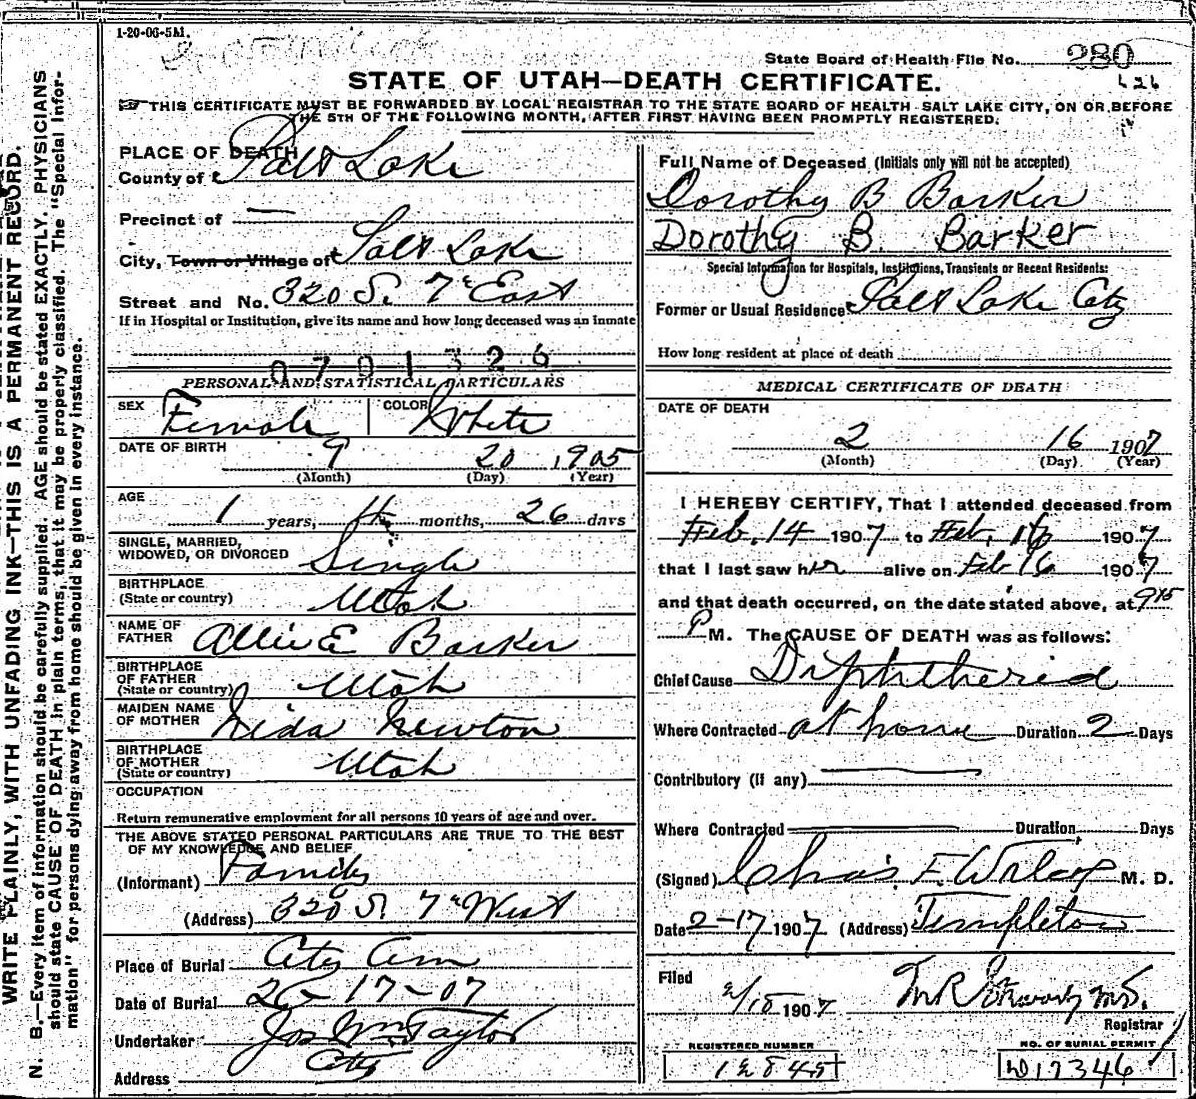 1-20-06-5M.
State Board of Health File No. 280
STATE OF UTAH—DEATH CERTIFICATE.
THIS CERTIFICATE MUST BE FORWARDED BY LOCAL REGISTRAR TO THE STATE BOARD OF HEALTH SALT LAKE CITY, ON OR BEFORE
THE 5TH OF THE FOLLOWING MONTH, AFTER FIRST HAVING BEEN PROMPTLY REGISTERED.
PLACE OF DEATH
County of Salt Lake
Precinct of —
City, Town or Village of Salt Lake
Street and No. 320 S. 7th East
If in Hospital or Institution, give its name and how long deceased was an inmate
0701326
PERSONAL AND STATISTICAL PARTICULARS
SEX Female COLOR White
DATE OF BIRTH 9 20 1905
(Month) (Day) (Year)
AGE
1 years, months, 26 days
SINGLE, MARRIED,
WIDOWED, OR DIVORCED Single
BIRTHPLACE
(State or country) Utah
NAME OF
FATHER Allie E Barker
BIRTHPLACE
OF FATHER
(State or country) Utah
MAIDEN NAME
OF MOTHER Lida Newton
BIRTHPLACE
OF MOTHER
(State or country) Utah
OCCUPATION
Return remunerative employment for all persons 10 years of age and over.
THE ABOVE STATED PERSONAL PARTICULARS ARE TRUE TO THE BEST
OF MY KNOWLEDGE AND BELIEF
(Informant) Family
(Address) 320 S. 7th West
Place of Burial City Cem
Date of Burial 2-17-07
Undertaker Jos Wm Taylor
Address City
Full Name of Deceased (Initials only will not be accepted)
Dorothy B Barker
Dorothy B. Barker
Special Information for Hospitals, Institutions, Transients or Recent Residents:
Former or Usual Residence Salt Lake City
How long resident at place of death
MEDICAL CERTIFICATE OF DEATH
DATE OF DEATH
2 16 1907
(Month) (Day) (Year)
I HEREBY CERTIFY, That I attended deceased from
Feb. 14 1907 to Feb. 16 1907
that I last saw her alive on Feb 16 1907
and that death occurred, on the date stated above, at 915
P M. The CAUSE OF DEATH was as follows:
Chief Cause Diphtheria
Where Contracted at home Duration 2 Days
Contributory (if any)
Where Contracted Duration Days
(Signed) Chas. F. Wilcox M. D.
Date 2-17 1907 (Address) Templeton
Filed
2/18 1907 M.D.
Registrar
REGISTERED NUMBER
NO. OF BURIAL PERMIT
D17346
WRITE PLAINLY, WITH UNFADING INK—THIS IS A PERMANENT RECORD.
N. B.—Every item of information should be carefully supplied. AGE should be stated EXACTLY. PHYSICIANS
should state CAUSE OF DEATH in plain terms, that it may be properly classified. The "Special Infor-
mation" for persons dying away from home should be given in every instance.